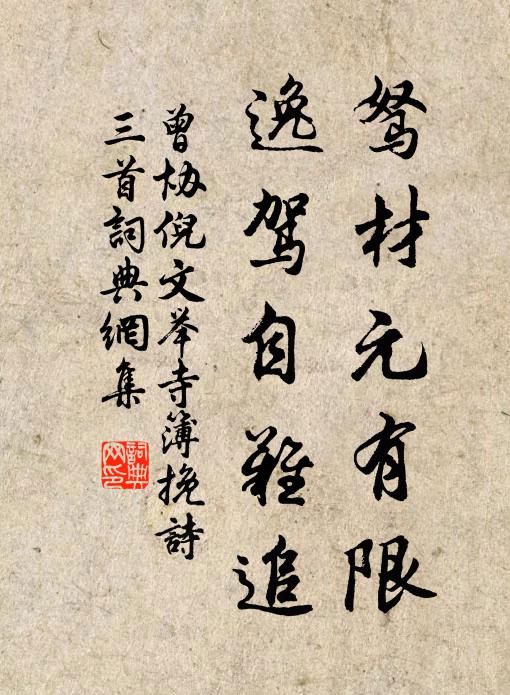 駑材元有限
逸駕自難追
曾协倪文举寺簿挽詩
三首詞典網集
詞典网印